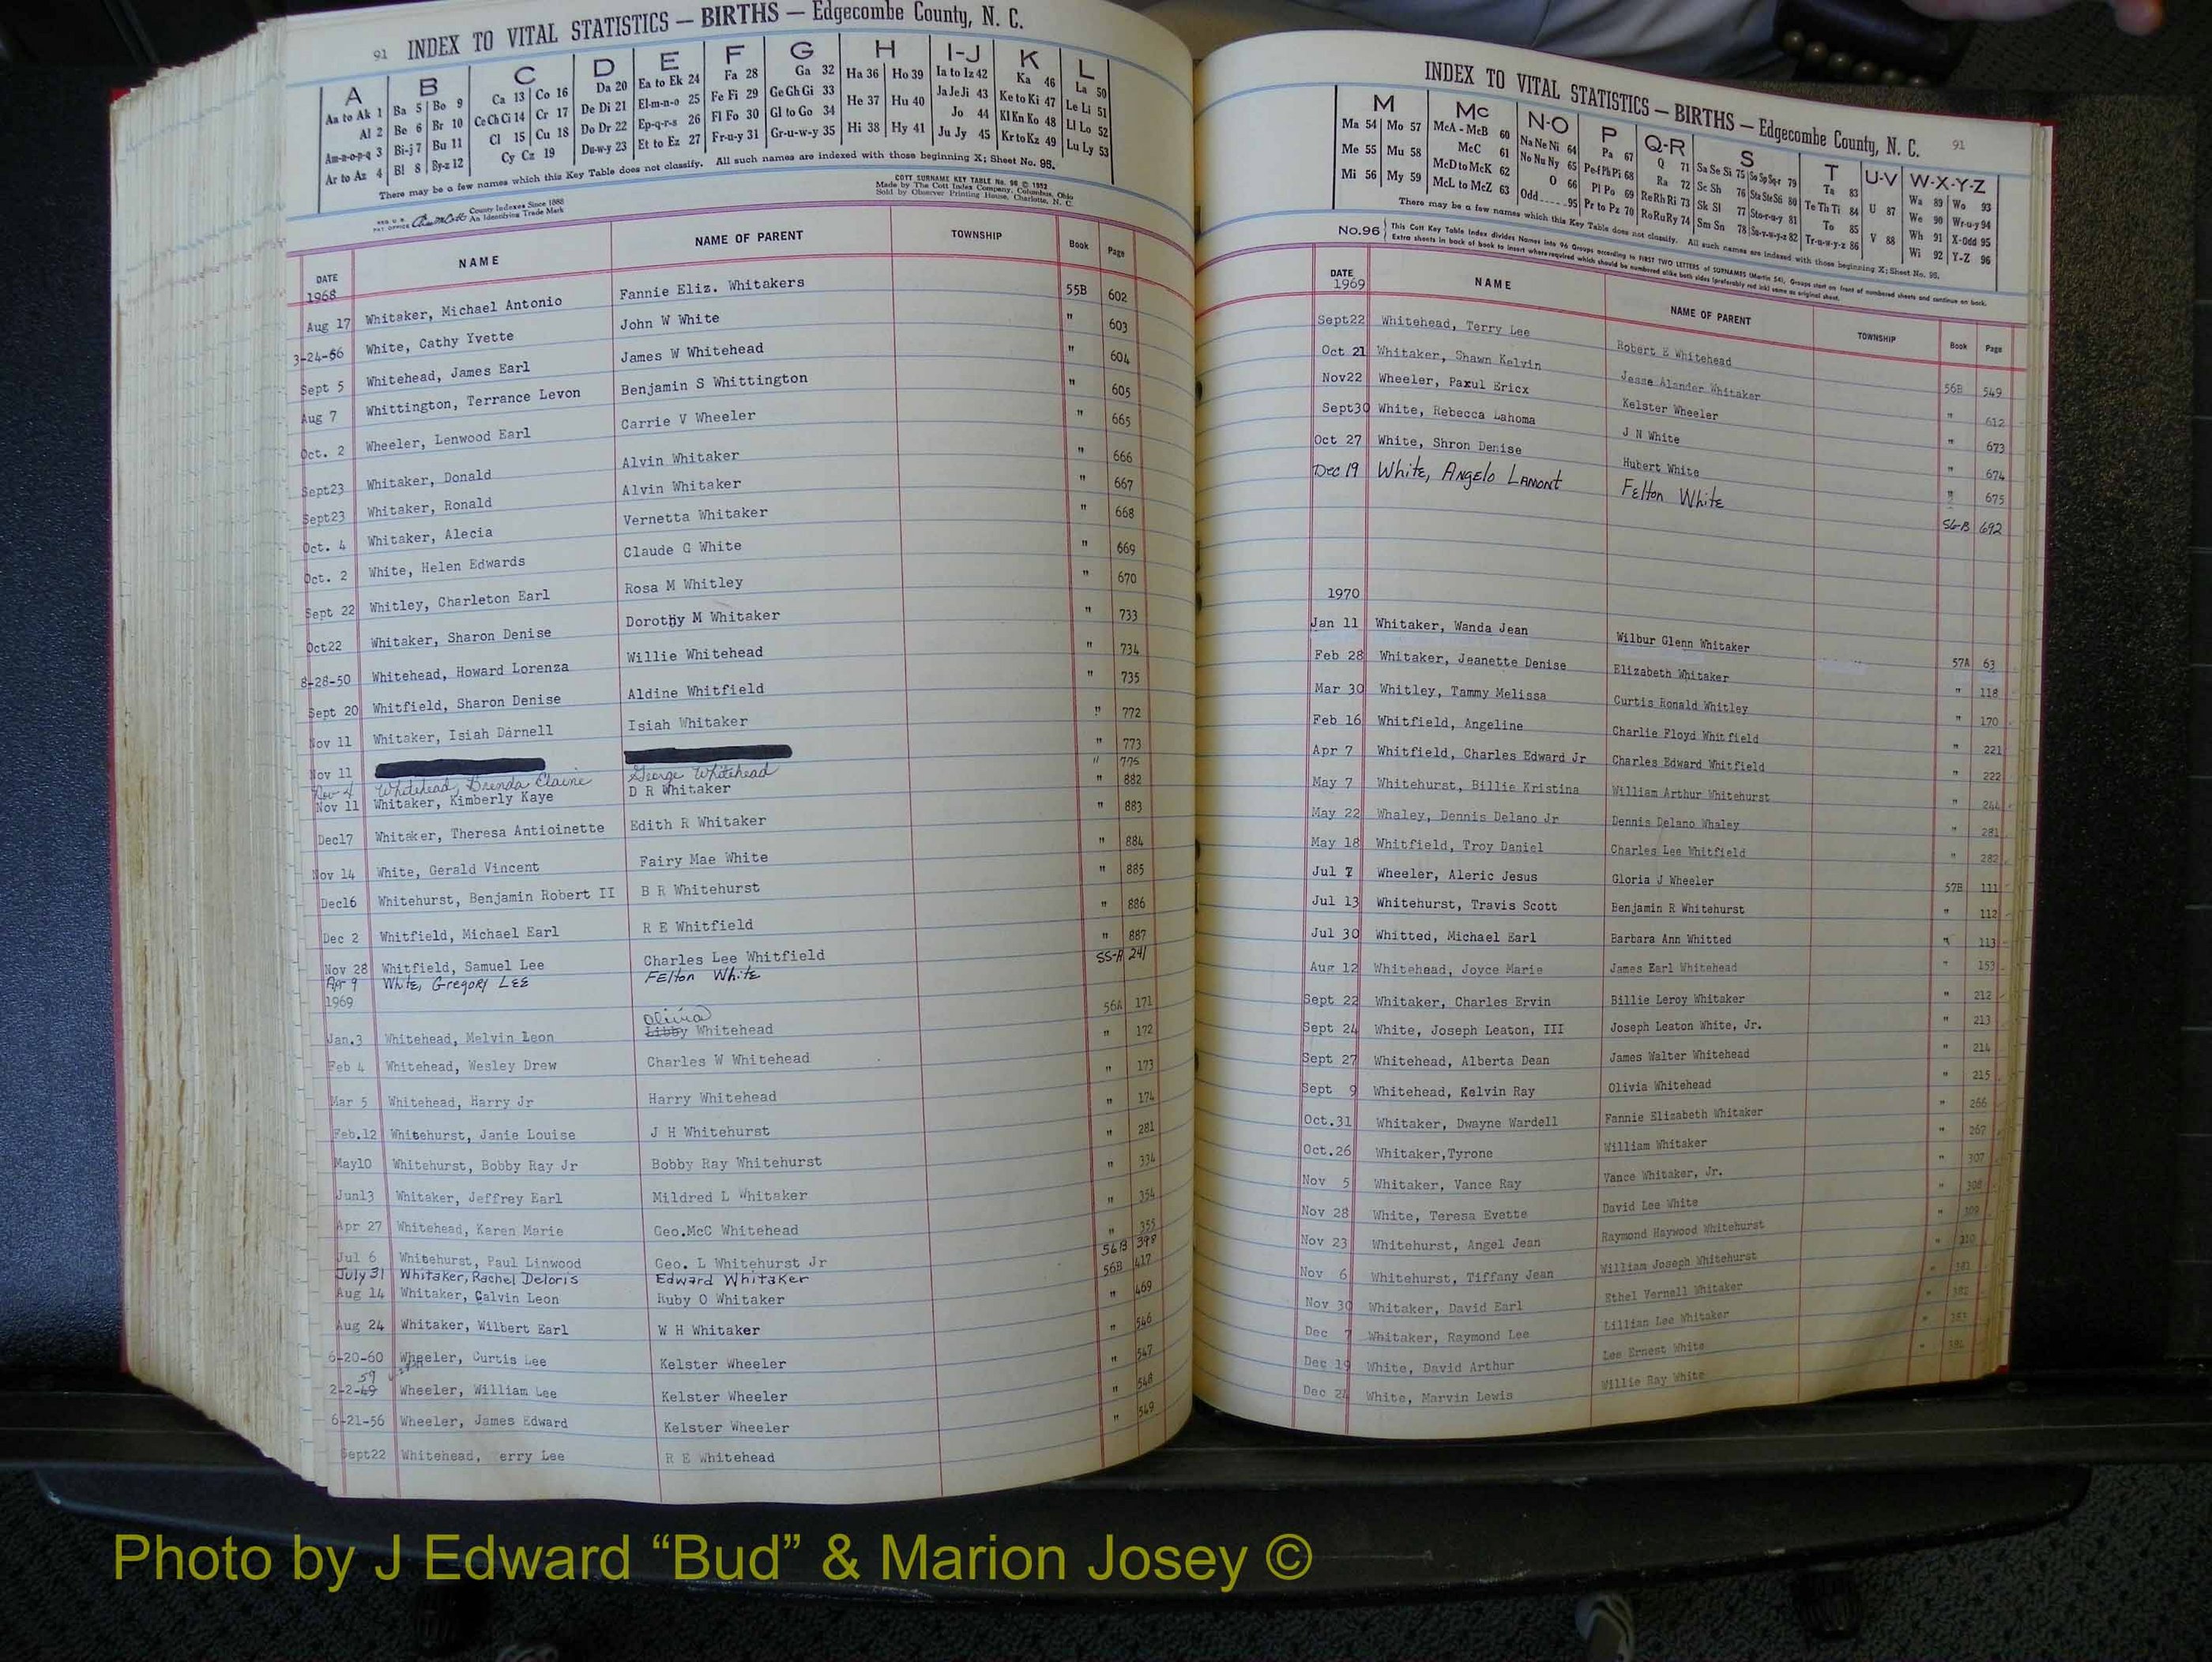 91 INDEX TO VITAL STATISTICS — BIRTHS — Edgecombe County, N. C.
A B C D E F G H I-J K L
Aa to Ak 1 Ba 5 Bo 9 Ca 13 Co 16 Da 20 Ea to Ek 24 Fa 28 Ga 32 Ha 36 Ho 39 Ia to Iz 42 Ka 46 La 50
Al 2 Be 6 Br 10 Ce Ch Ci 14 Cr 17 De Di 21 El-m-n-o 25 Fe Fi 29 Ge Gh Gi 33 He 37 Hu 40 Ja Je Ji 43 Ke to Ki 47 Le Li 51
Am-n-o-p-q 3 Bi-j 7 Bu 11 Cl 15 Cu 18 Do Dr 22 Ep-q-r-s 26 Fl Fo 30 Gl to Go 34 Hi 38 Hy 41 Jo 44 Kl Kn Ko 48 Ll Lo 52
Ar to Az 4 Bl 8 By-z 12 Cy Cz 19 Du-w-y 23 Et to Ez 27 Fr-u-y 31 Gr-u-w-y 35 Ju Jy 45 Kr to Kz 49 Lu Ly 53
There may be a few names which this Key Table does not classify. All such names are indexed with those beginning X; Sheet No. 95.
COTT SURNAME KEY TABLE No. 96 © 1952
Made by The Cott Index Company, Columbus, Ohio
Sold by Observer Printing House, Charlotte, N. C.
County Indexes Since 1888
An Identifying Trade Mark
DATE NAME NAME OF PARENT TOWNSHIP Book Page
1968
Aug 17 Whitaker, Michael Antonio Fannie Eliz. Whitakers 55B 602
3-24-66 White, Cathy Yvette John W White " 603
Sept 5 Whitehead, James Earl James W Whitehead " 604
Aug 7 Whittington, Terrance Levon Benjamin S Whittington " 605
Oct. 2 Wheeler, Lenwood Earl Carrie V Wheeler " 665
Sept23 Whitaker, Donald Alvin Whitaker " 666
Sept23 Whitaker, Ronald Alvin Whitaker " 667
Oct. 4 Whitaker, Alecia Vernetta Whitaker " 668
Oct. 2 White, Helen Edwards Claude G White " 669
Sept 22 Whitley, Charleton Earl Rosa M Whitley " 670
Oct22 Whitaker, Sharon Denise Dorothy M Whitaker " 733
8-28-50 Whitehead, Howard Lorenza Willie Whitehead " 734
Sept 20 Whitfield, Sharon Denise Aldine Whitfield " 735
Nov 11 Whitaker, Isiah Darnell Isiah Whitaker " 772
Nov 11 " 773
Nov 4 Whitehead, Brenda Elaine George Whitehead " 775
Nov 11 Whitaker, Kimberly Kaye D R Whitaker " 882
Dec17 Whitaker, Theresa Antioinette Edith R Whitaker " 883
Nov 14 White, Gerald Vincent Fairy Mae White " 884
Dec16 Whitehurst, Benjamin Robert II B R Whitehurst " 885
Dec 2 Whitfield, Michael Earl R E Whitfield " 886
Nov 28 Whitfield, Samuel Lee Charles Lee Whitfield " 887
Apr 9 White, Gregory Lee Felton White 55-A 241
1969
Jan.3 Whitehead, Melvin Leon Olivia Libby Whitehead 56A 171
Feb 4 Whitehead, Wesley Drew Charles W Whitehead " 172
Mar 5 Whitehead, Harry Jr Harry Whitehead " 173
Feb.12 Whitehurst, Janie Louise J H Whitehurst " 174
May10 Whitehurst, Bobby Ray Jr Bobby Ray Whitehurst " 281
Jun13 Whitaker, Jeffrey Earl Mildred L Whitaker " 334
Apr 27 Whitehead, Karen Marie Geo.McC Whitehead " 354
Jul 6 Whitehurst, Paul Linwood Geo. L Whitehurst Jr " 355
July 31 Whitaker, Rachel Deloris Edward Whitaker 56B 398
Aug 14 Whitaker, Calvin Leon Ruby O Whitaker 56B 417
Aug 24 Whitaker, Wilbert Earl W H Whitaker " 469
6-20-60 Wheeler, Curtis Lee Kelster Wheeler " 546
59
2-2-49 Wheeler, William Lee Kelster Wheeler " 547
6-21-56 Wheeler, James Edward Kelster Wheeler " 548
Sept22 Whitehead, erry Lee R E Whitehead " 549
INDEX TO VITAL STATISTICS — BIRTHS — Edgecombe County, N. C. 91
M Mc N-O P Q-R S T U-V W-X-Y-Z
Ma 54 Mo 57 McA - McB 60 Na Ne Ni 64 Pa 67 Q 71 Sa Se Si 75 So Sp Sq-r 79 Ta 83 U 87 Wa 89 Wo 93
Me 55 Mu 58 McC 61 No Nu Ny 65 Pe-f Ph Pi 68 Ra 72 Sc Sh 76 Sta Ste Sti 80 Te Th Ti 84 V 88 We 90 Wr-u-y 94
Mi 56 My 59 McD to McK 62 O 66 Pl Po 69 Re Rh Ri 73 Sk Sl 77 Sto-r-u-y 81 To 85 Wh 91 X-Odd 95
McL to McZ 63 Odd 95 Pr to Pz 70 Ro Ru Ry 74 Sm Sn 78 Su-v-w-y-z 82 Tr-u-w-y-z 86 Wi 92 Y-Z 96
There may be a few names which this Key Table does not classify. All such names are indexed with those beginning X; Sheet No. 95.
No.96 This Cott Key Table Index divides Names into 96 Groups according to FIRST TWO LETTERS of SURNAMES (Martin 54). Groups start on front of numbered sheets and continue on back.
Extra sheets in back of book to insert where required which should be numbered alike both sides (preferably red ink) same as original sheet.
DATE NAME NAME OF PARENT TOWNSHIP Book Page
1969
Sept22 Whitehead, Terry Lee Robert E Whitehead 56B 549
Oct 21 Whitaker, Shawn Kelvin Jesse Alander Whitaker " 612
Nov22 Wheeler, Paxul Ericx Kelster Wheeler " 673
Sept30 White, Rebecca Lahoma J N White " 674
Oct 27 White, Shron Denise Hubert White " 675
Dec 19 White, Angelo Lamont Felton White 56-B 692
1970
Jan 11 Whitaker, Wanda Jean Wilbur Glenn Whitaker 57A 63
Feb 28 Whitaker, Jeanette Denise Elizabeth Whitaker " 118
Mar 30 Whitley, Tammy Melissa Curtis Ronald Whitley " 170
Feb 16 Whitfield, Angeline Charlie Floyd Whitfield " 221
Apr 7 Whitfield, Charles Edward Jr Charles Edward Whitfield " 222
May 7 Whitehurst, Billie Kristina William Arthur Whitehurst " 244
May 22 Whaley, Dennis Delano Jr Dennis Delano Whaley " 281
May 18 Whitfield, Troy Daniel Charles Lee Whitfield " 282
Jul 7 Wheeler, Aleric Jesus Gloria J Wheeler 57B 111
Jul 13 Whitehurst, Travis Scott Benjamin R Whitehurst " 112
Jul 30 Whitted, Michael Earl Barbara Ann Whitted " 113
Aug 12 Whitehead, Joyce Marie James Earl Whitehead " 153
Sept 22 Whitaker, Charles Ervin Billie Leroy Whitaker " 212
Sept 24 White, Joseph Leaton, III Joseph Leaton White, Jr. " 213
Sept 27 Whitehead, Alberta Dean James Walter Whitehead " 214
Sept 9 Whitehead, Kelvin Ray Olivia Whitehead " 215
Oct.31 Whitaker, Dwayne Wardell Fannie Elizabeth Whitaker " 266
Oct.26 Whitaker,Tyrone William Whitaker " 267
Nov 5 Whitaker, Vance Ray Vance Whitaker, Jr. " 307
Nov 28 White, Teresa Evette David Lee White " 308
Nov 23 Whitehurst, Angel Jean Raymond Haywood Whitehurst " 309
Nov 6 Whitehurst, Tiffany Jean William Joseph Whitehurst " 310
Nov 30 Whitaker, David Earl Ethel Vernell Whitaker " 381
Dec 7 Whitaker, Raymond Lee Lillian Lee Whitaker " 382
Dec 19 White, David Arthur Lee Ernest White " 383
Dec 24 White, Marvin Lewis Willie Ray White " 384
Photo by J Edward “Bud” & Marion Josey ©